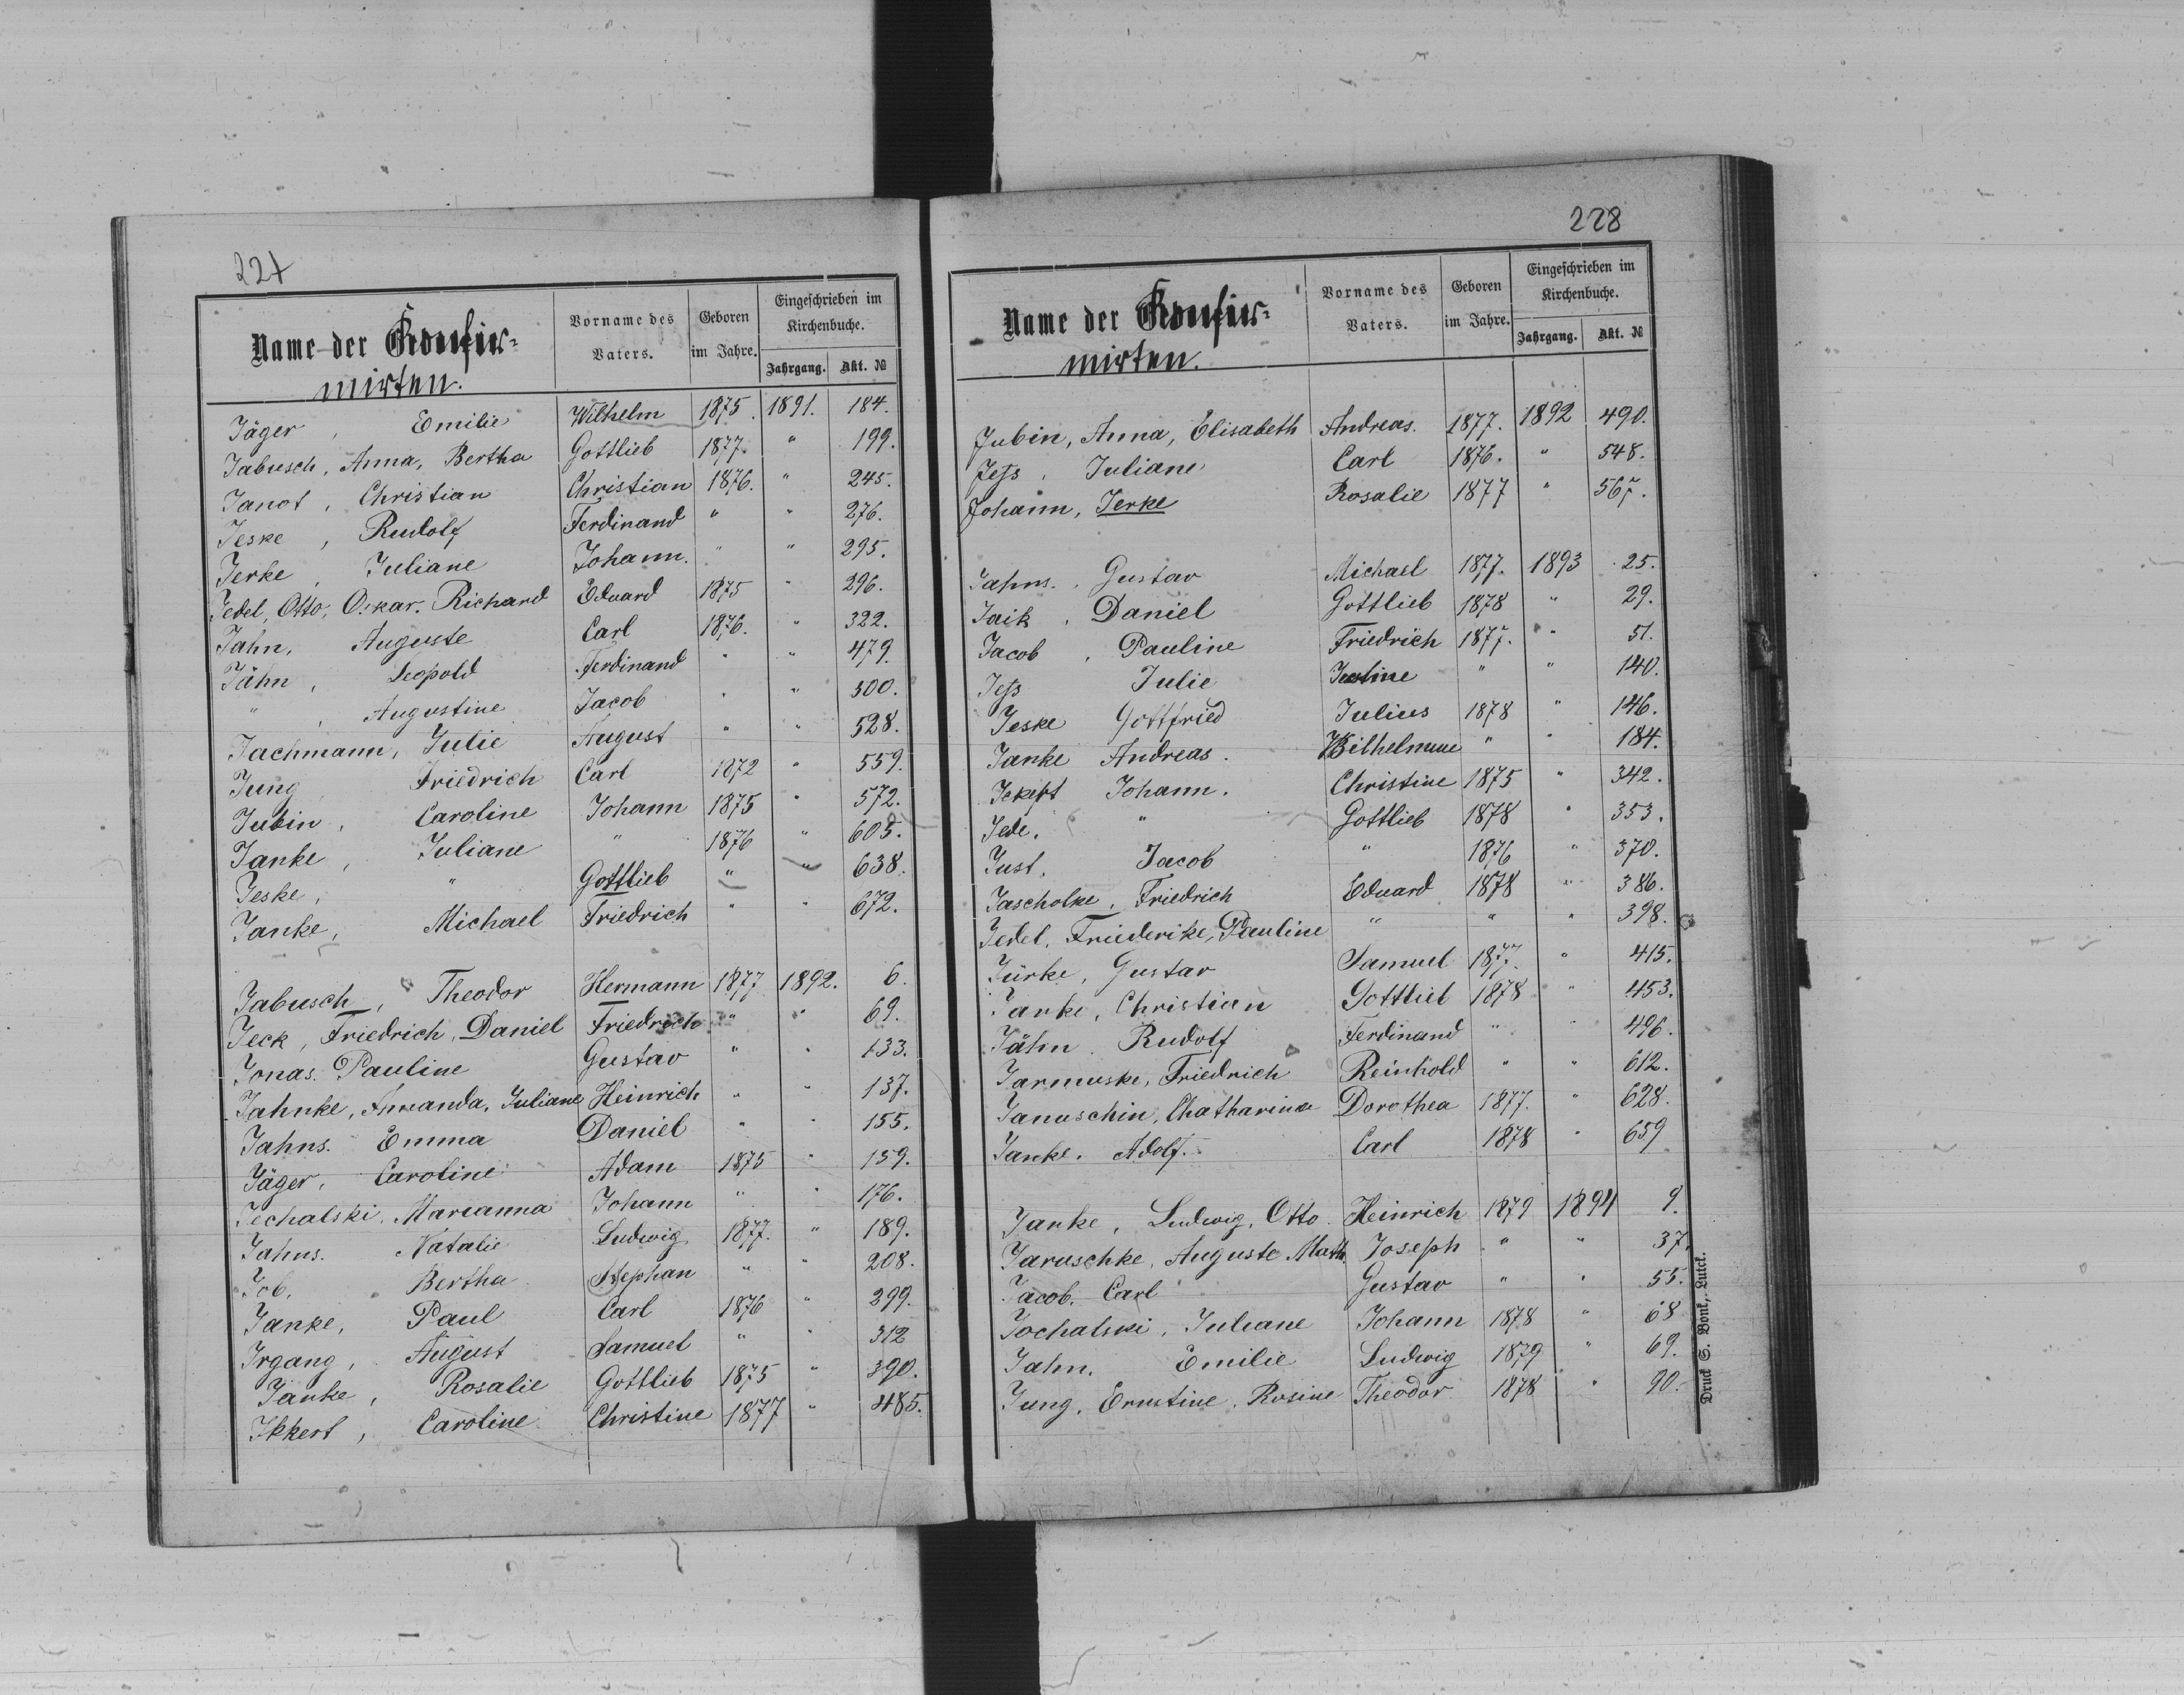 227
Name der Konfir-
mirten.
Vorname des
Vaters.
Geboren
im Jahre.
Eingeschrieben im
Kirchenbuche.
Jahrgang. Akt. №
Jäger, Emilie Wilhelm 1875. 1891. 184.
Jabusch, Anna, Bertha Gottlieb 1877. " 199.
Janot, Christian Christian 1876. " 245.
Jeske, Rudolf Ferdinand " " 276.
Jerke, Juliane Johann. " " 295.
Jedel, Otto, Oskar. Richard Eduard 1875 " 296.
Jahn, Auguste Carl 1876. " 322.
Jähn, Leopold Ferdinand " " 479.
" , Augustine Jacob " " 500.
Jachmann, Julie August " " 528.
Jung, Friedrich Carl 1872 " 559.
Jubin, Caroline Johann 1875 " 572.
Janke, Juliane " 1876 " 605.
Jeske, " Gottlieb " " 638.
Janke, Michael Friedrich " " 672.
Jabusch, Theodor Hermann 1877 1892. 6.
Jeck, Friedrich, Daniel Friedrich " " 69.
Jonas. Pauline Gustav " " 133.
Jahnke, Amanda, Juliane Heinrich " " 137.
Jahns. Emma Daniel " " 155.
Jäger, Caroline Adam 1875 " 159.
Jechalski, Marianna Johann " " 176.
Jahns. Natalie Ludwig 1877. " 189.
Job, Bertha Stephan " " 208.
Janke, Paul Carl 1876 " 299.
Irgang, August Samuel " " 312
Janke, Rosalie Gottlieb 1875 " 390.
Ikkert, Caroline Christine 1877 " 485.
228
Name der Konfir-
mirten.
Vorname des
Vaters.
Geboren
im Jahre.
Eingeschrieben im
Kirchenbuche.
Jahrgang. Akt. №
Jubin, Anna, Elisabeth Andreas. 1877. 1892 490.
Jeß, Juliane Carl 1876. " 548.
Johann, Jerke Rosalie 1877 " 567.
Jahns. Gustav Michael 1877. 1893 25.
Jaik, Daniel Gottlieb 1878 " 29.
Jacob, Pauline Friedrich 1877. " 51.
Jeß Julie Justine " " 140.
Jeske Gottfried Julius 1878 " 146.
Janke Andreas. Wilhelmine " " 184.
Ickert Johann. Christine 1875 " 342.
Jede, " Gottlieb 1878 " 353.
Just, Jacob " 1876 " 370.
Jascholke, Friedrich Eduard 1878 " 386.
Jedel, Friederike, Pauline " " " 398.
Jürke, Gustav Samuel 1877. " 415.
Janke, Christian Gottlieb 1878 " 453.
Jähn Rudolf Ferdinand " " 496.
Jarmuske, Friedrich Reinhold " " 612.
Januschin, Chatharina Dorothea 1877. " 628.
Janke. Adolf. Carl 1878 " 659
Janke, Ludwig, Otto Heinrich 1879 1894 9.
Jaruschke, Auguste Math. Joseph " " 37.
Jacob. Carl Gustav " " 55.
Jochalski, Juliane Johann 1878 " 68
Jahn, Emilie Ludwig 1879 " 69.
Jung, Ernstine, Rosine Theodor 1878 " 90.
Druck S. Bonk, Luck.